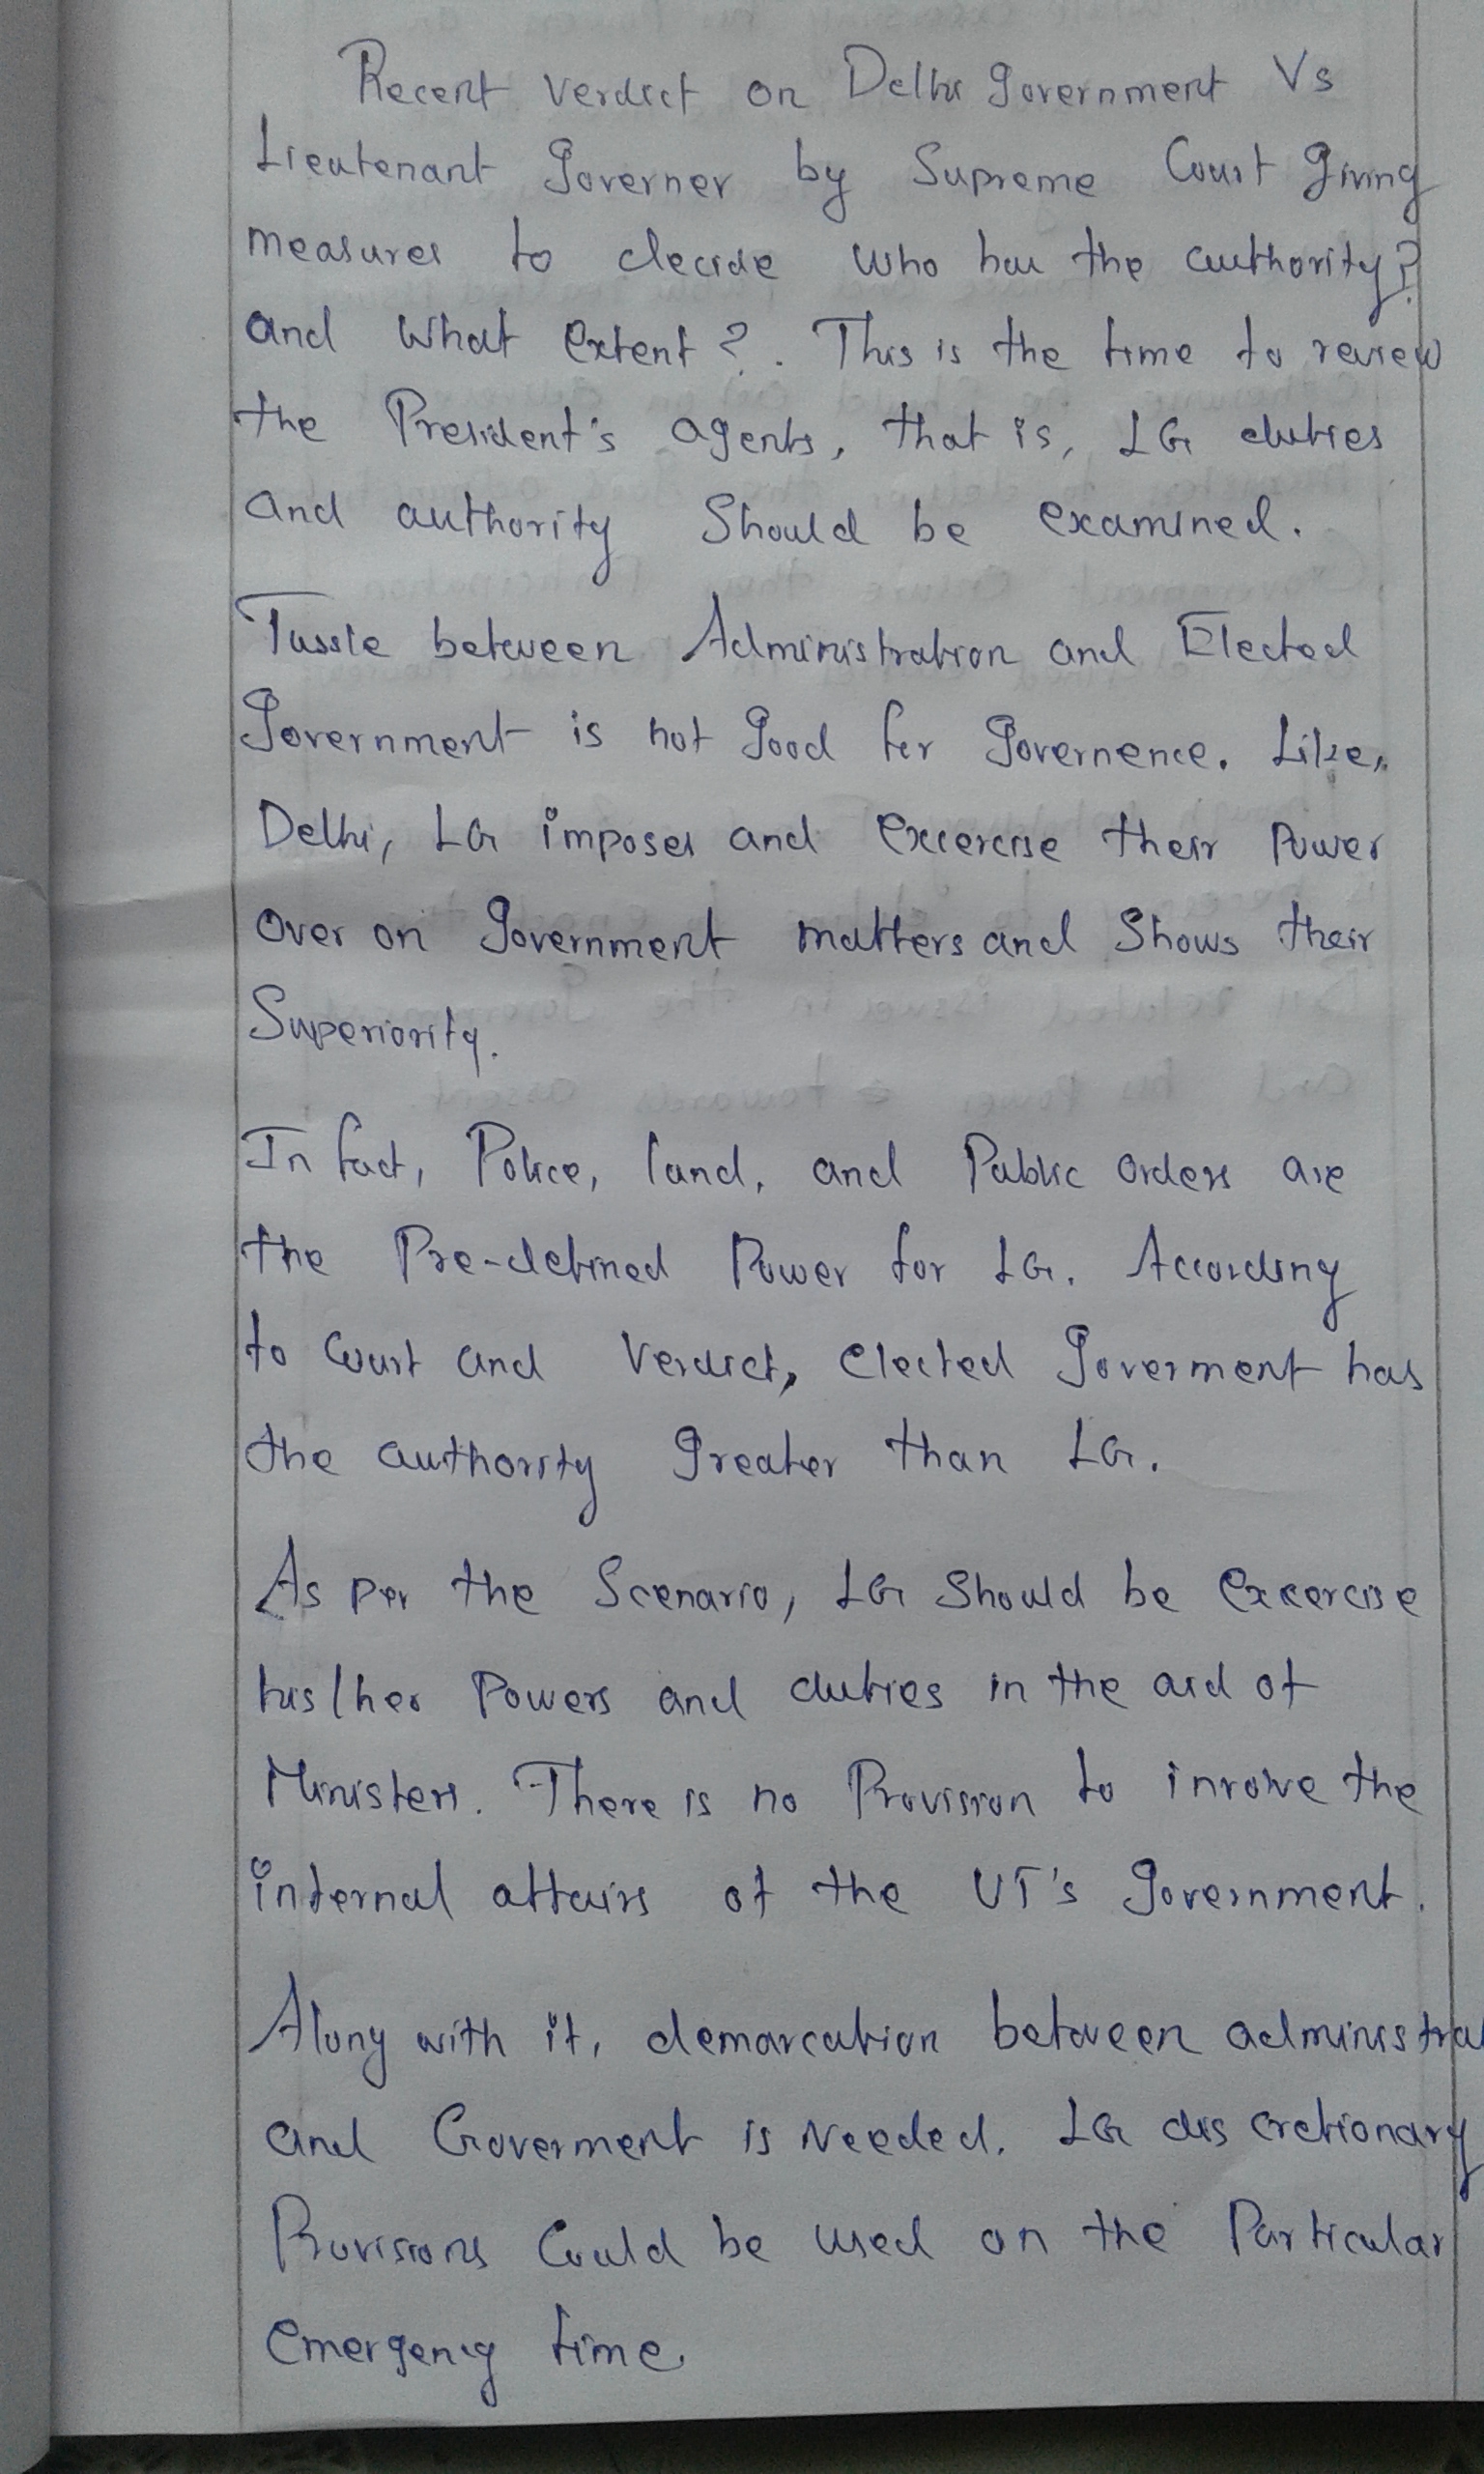 Recent verdict on Delhi Government Vs
Lieutenant Governer by Supreme Court giving
measures to decide who has the authority?
and what extent?. This is the time to review
the President's agents, that is, LG duties
and authority Should be examined.
Tussle between Administration and Elected
Government is not good for Governence. Like,
Delhi, LG imposes and excercise their Power
over on Government matters and Shows their
Superiority.
In fact, Police, land, and Public orders are
the Pre-defined Power for LG. According
to Court and Verdict, elected Goverment has
the authority greater than LG.
As per the Scenario, LG Should be excercise
his/her Powers and duties in the aid of
Ministers. There is no Provision to involve the
internal affairs of the UT's Government.
Along with it, demarcation between administrat
and Goverment is Needed. LG discretionary
Provisions Could be used on the Particular
emergency time.